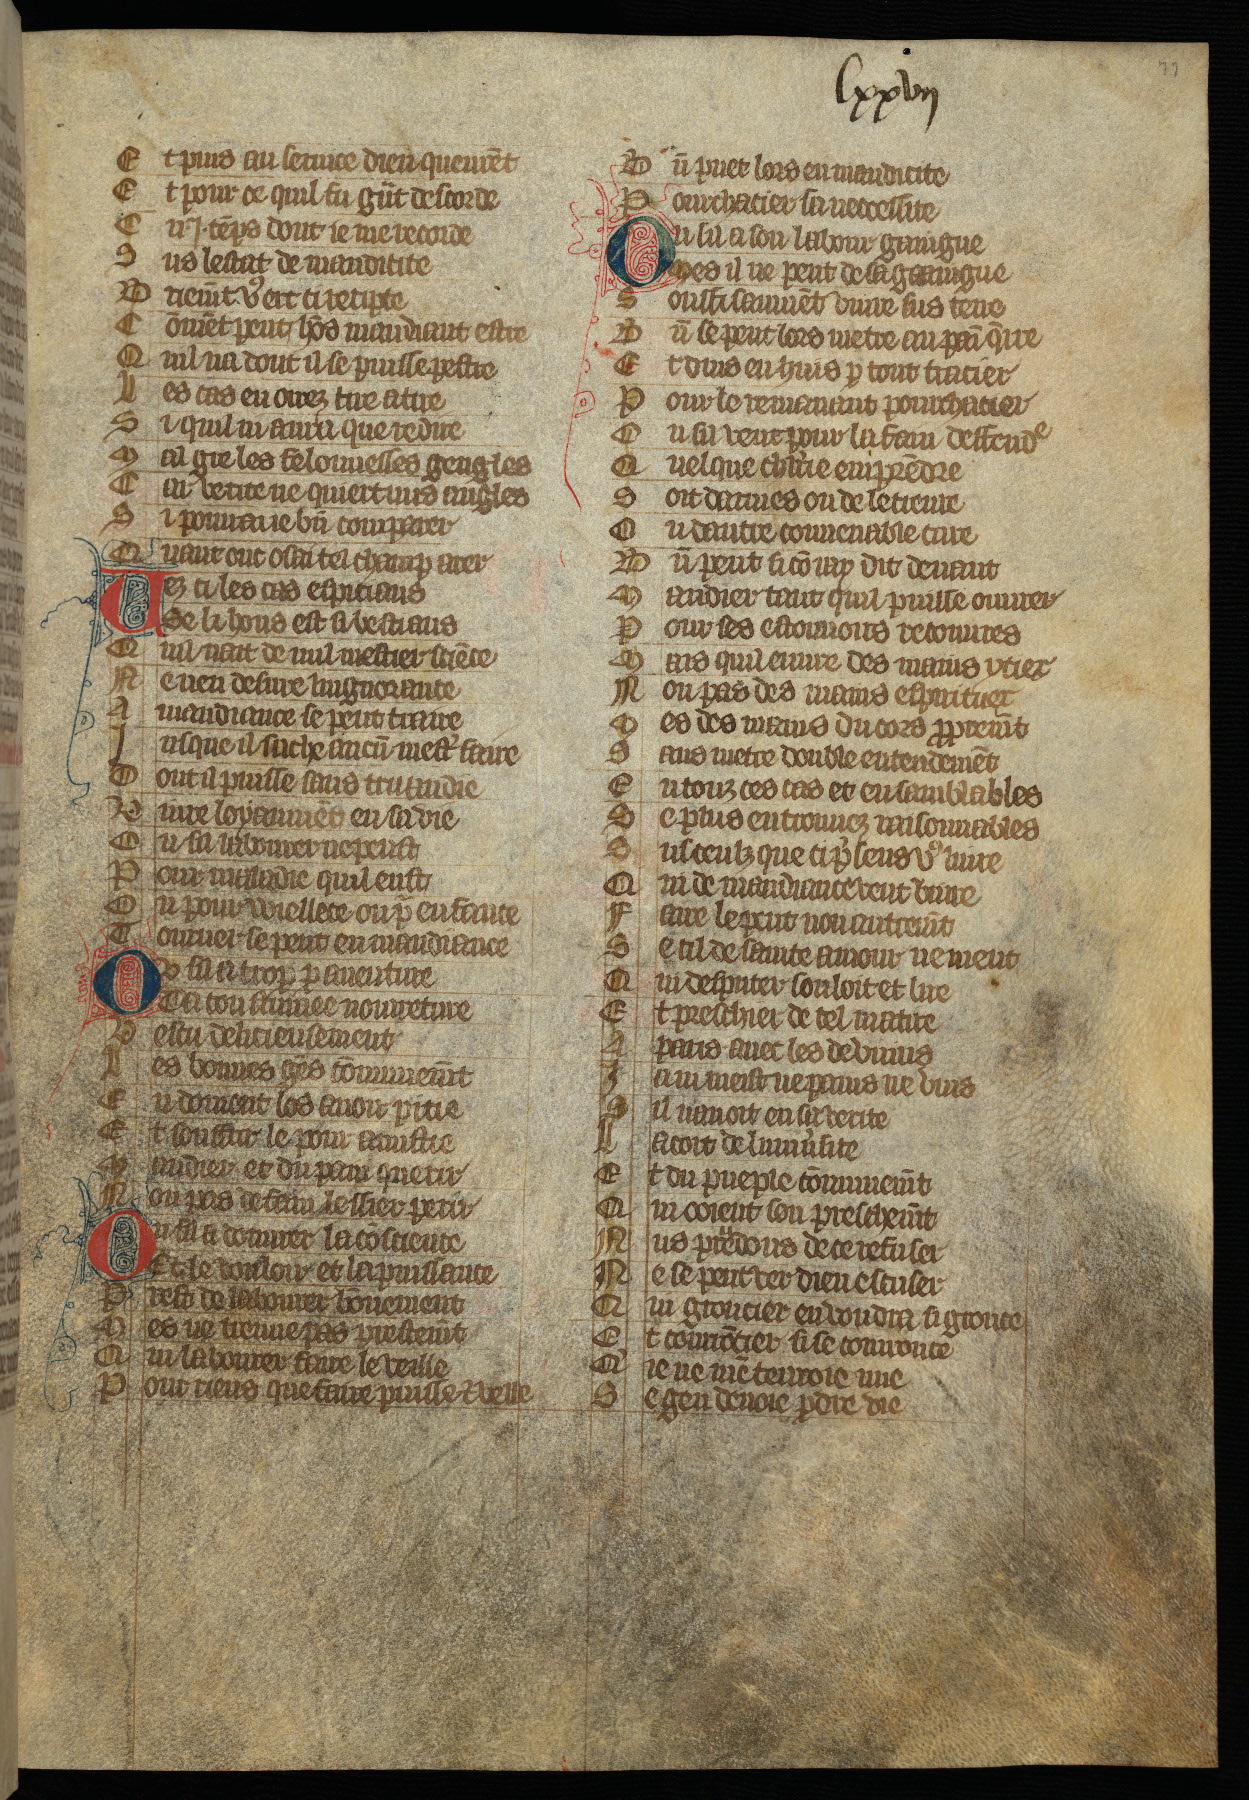 lxxvij
77
E t puis au seruice dieu queurēt
E t pour ce quil fu gñt descorde
E n .j. tēps dont ie me recorde
S us lestat de mandicite
B riemt v͛ ert ci recipte
C ōmēt peut hōs mandiant estre
Q uil na dont il se puisse pestre
L es cas en orrez tire a tire
S i quil ni aura que redire
M al gre les felonnesses gengles
C ar verite ne quiert nus angles
S i pourraie bñ comparer
Q uant onc osai tel champ arer
V ez ci les cas espiciaus
Se li hons est si bestiaus
Q uil nait de nul mestier sciēce
N e nen desirre lingnorance
A mandiance se peut traire
J usque il sache aucū mest͛ faire
D ont il puisse sans truandie
N iure loyaumēt en sa vie
O u sil labourer ne peust
P our maladie quil eust
O u pour viellece ou p̄ enffance
T ourner se peut en mandiance
O v sil a trop p auenture
Da coustumee nourreture
V escu delicieusement
L es bonnes gēs cōmunemt
E n doiuent los auoir pitie
E t souffrir le pour amistie
M andier et du pain querir
N on pas de faim lessier perir
O u sil a dourer la cōscience
Et le vouloir et la puissance
P rest de labourer bōnement
M es ne treuue pas prestemt
Q ui labourer faire le veille
P our riens que faire puisse & veille
B ñ puet lors en mandicite
P ourchacier sa neccessite
O u sil a son labour gaaigne
Mes il ne peut de sa gaaigne
S ouffisaumēt viure sus terre
B ñ se peut lors metre au pai q̄rre
E t duis en huis p tout tracier
P our le remanant pourchacier
O u sil veut pour la foi deffendre
Q uelque cheualerie emprēdre
S oit darmes ou de letreure
O u dautre conuenable cure
B ñ peut si cō iay dit deuant
M andier tant quil puisse ouurer
P our ses estouuoirs recouurer
M ais quil euure des mains ytiex
N on pas des mains espirituex
M es des mains du cors ꝓpremt
S ans metre double entendemēt
E n touz ces cas et en samblables
S e plus en trouuez raisonnables
S us ceulz que ci p̄sens v͛ liure
Q ui de mandiance veut viure
F aire le peut non autremt
S e cil de sainte amour ne ment
Q ui desputer souloit et lire
E t preschier de tel matire
A paris auec les deuins
J a ni meist ne pains ne vins
S il nauoit en sa verite
L acort de luniu͛site
E t du pueple cōmunemt
Q ui ooient son preschemt
N us preudons de ce refuser
N e se peut ver dieu escuser
Q ui groucier en voudra si grouce
E t courroucier si se courrouce
Q ie ne mē teuroie mie
S e gen deuoie pdre vie